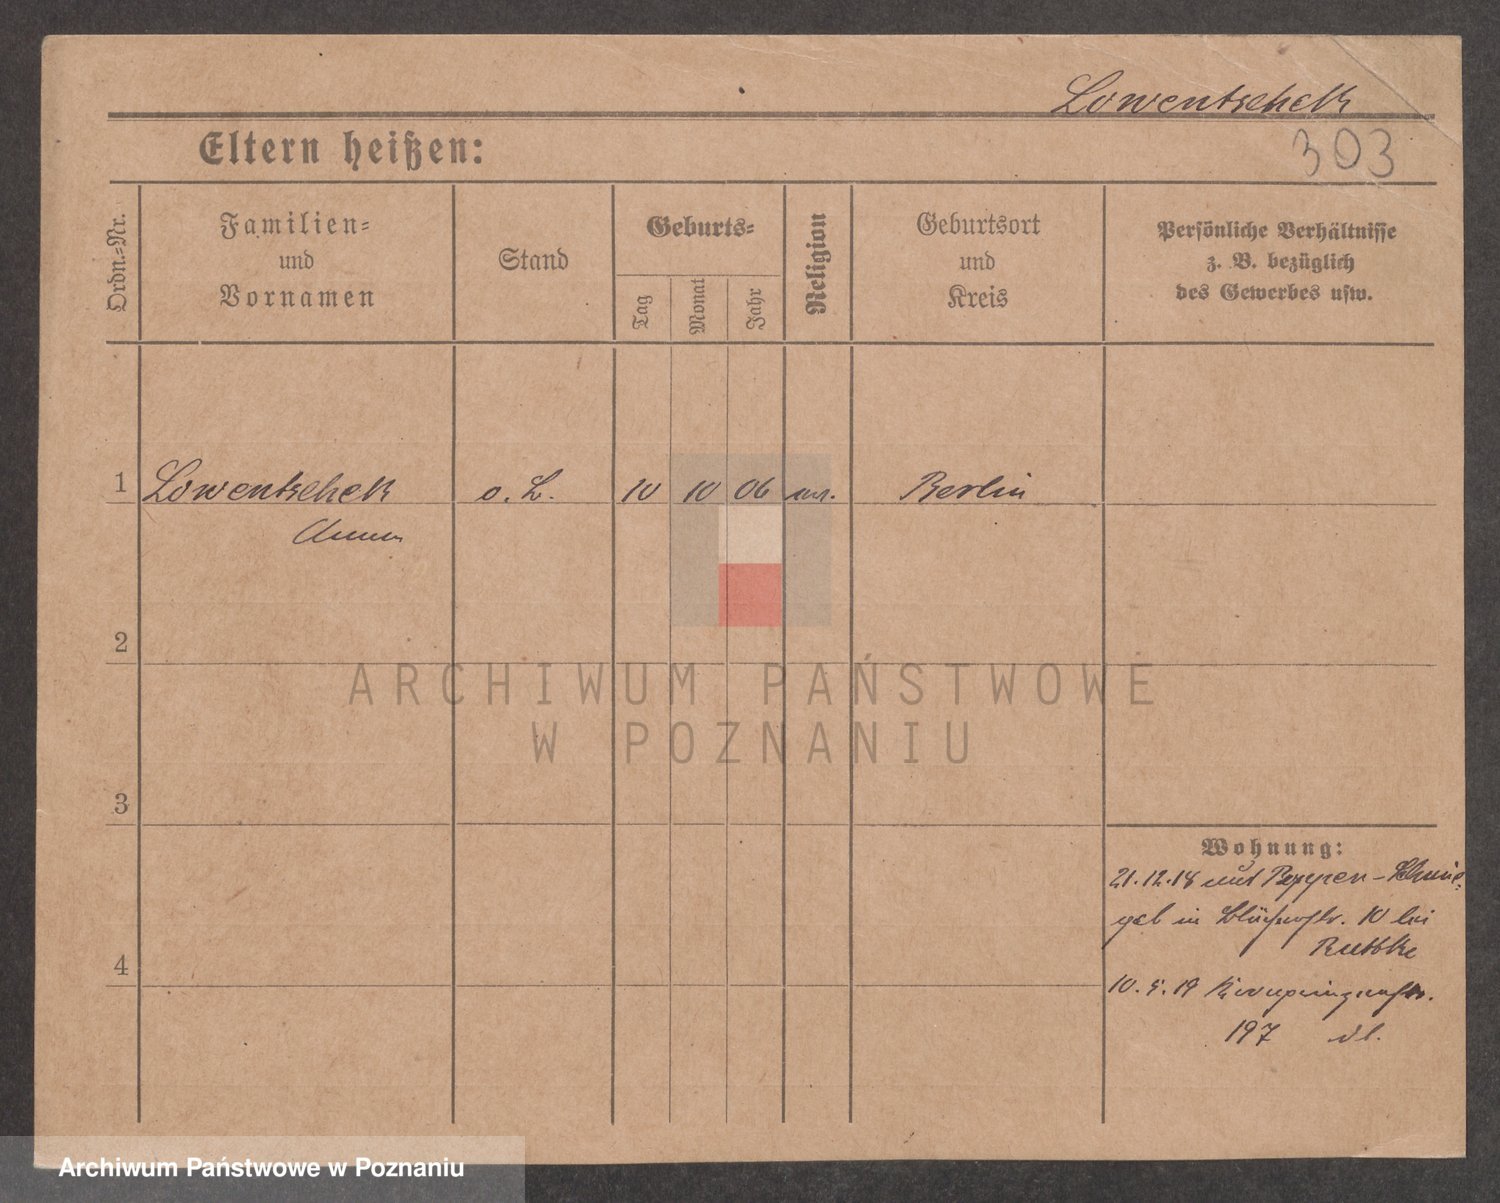 Lowentschek
303
Eltern heißen:
Ordn.=Nr.
Familien=
und
Vornamen
Stand
Geburts=
Tag
Monat
Jahr
Religion
Geburtsort
und
Kreis
Persönliche Verhältnisse
z. B. bezüglich
des Gewerbes usw.
1 Lowentschek o. L. 10 10 06 Berlin
2
3
4
Wohnung:
21.12.18 aus Peppen-
geb in Blücherstr. 10 bei
Ruttke
10.5.19 Kronprinzenstr.
197 dl.
ARCHIWUM PAŃSTWOWE
W POZNANIU
Archiwum Państwowe w Poznaniu